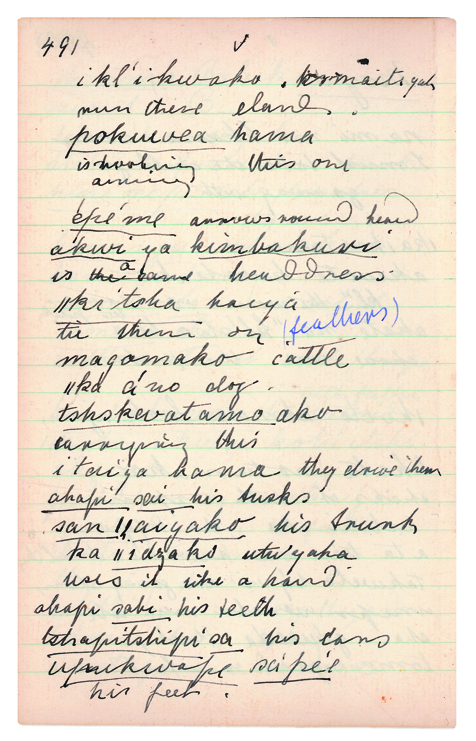 491 ✓
ikl'i kwako.
run there elands.
pokuwea hama
is shooting this one
aiming
épéme arrows round head
ákwi ya kimbakuvi
is a headdress
||ki tsha haiyá
tie them on (feathers)
magomako cattle
||ka áno dog.
ako
carrying this
i taiya hama they drive them
ahapi sai his tusks
san yaiyako his trunk
ka ||idzako utwyaha
uses it like a hand
ahapi sabi his teeth
tshapitshipi sa his ears
sápéé
his feet.